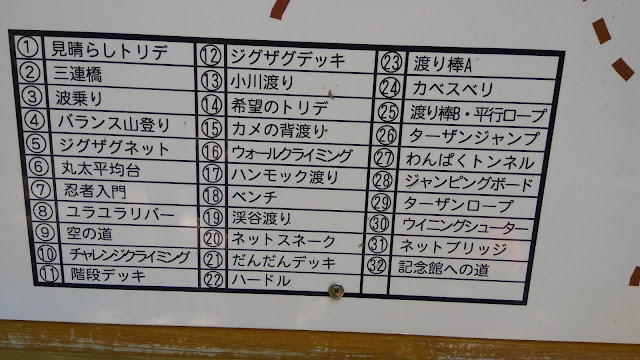 ① 見晴らしトリデ
② 三連橋
③ 波乗り
④ バランス山登り
⑤ ジグザグネット
⑥ 丸太平均台
⑦ 忍者入門
⑧ ユラユラリバー
⑨ 空の道
⑩ チャレンジクライミング
⑪ 階段デッキ
⑫ ジグザグデッキ
⑬ 小川渡り
⑭ 希望のトリデ
⑮ カメの背渡り
⑯ ウォールクライミング
⑰ ハンモック渡り
⑱ ベンチ
⑲ 渓谷渡り
⑳ ネットスネーク
㉑ だんだんデッキ
㉒ ハードル
㉓ 渡り棒A
㉔ カベスベリ
㉕ 渡り棒B・平行ロープ
㉖ ターザンジャンプ
㉗ わんぱくトンネル
㉘ ジャンピングボード
㉙ ターザンロープ
㉚ ウイニングシューター
㉛ ネットブリッジ
㉜ 記念館への道